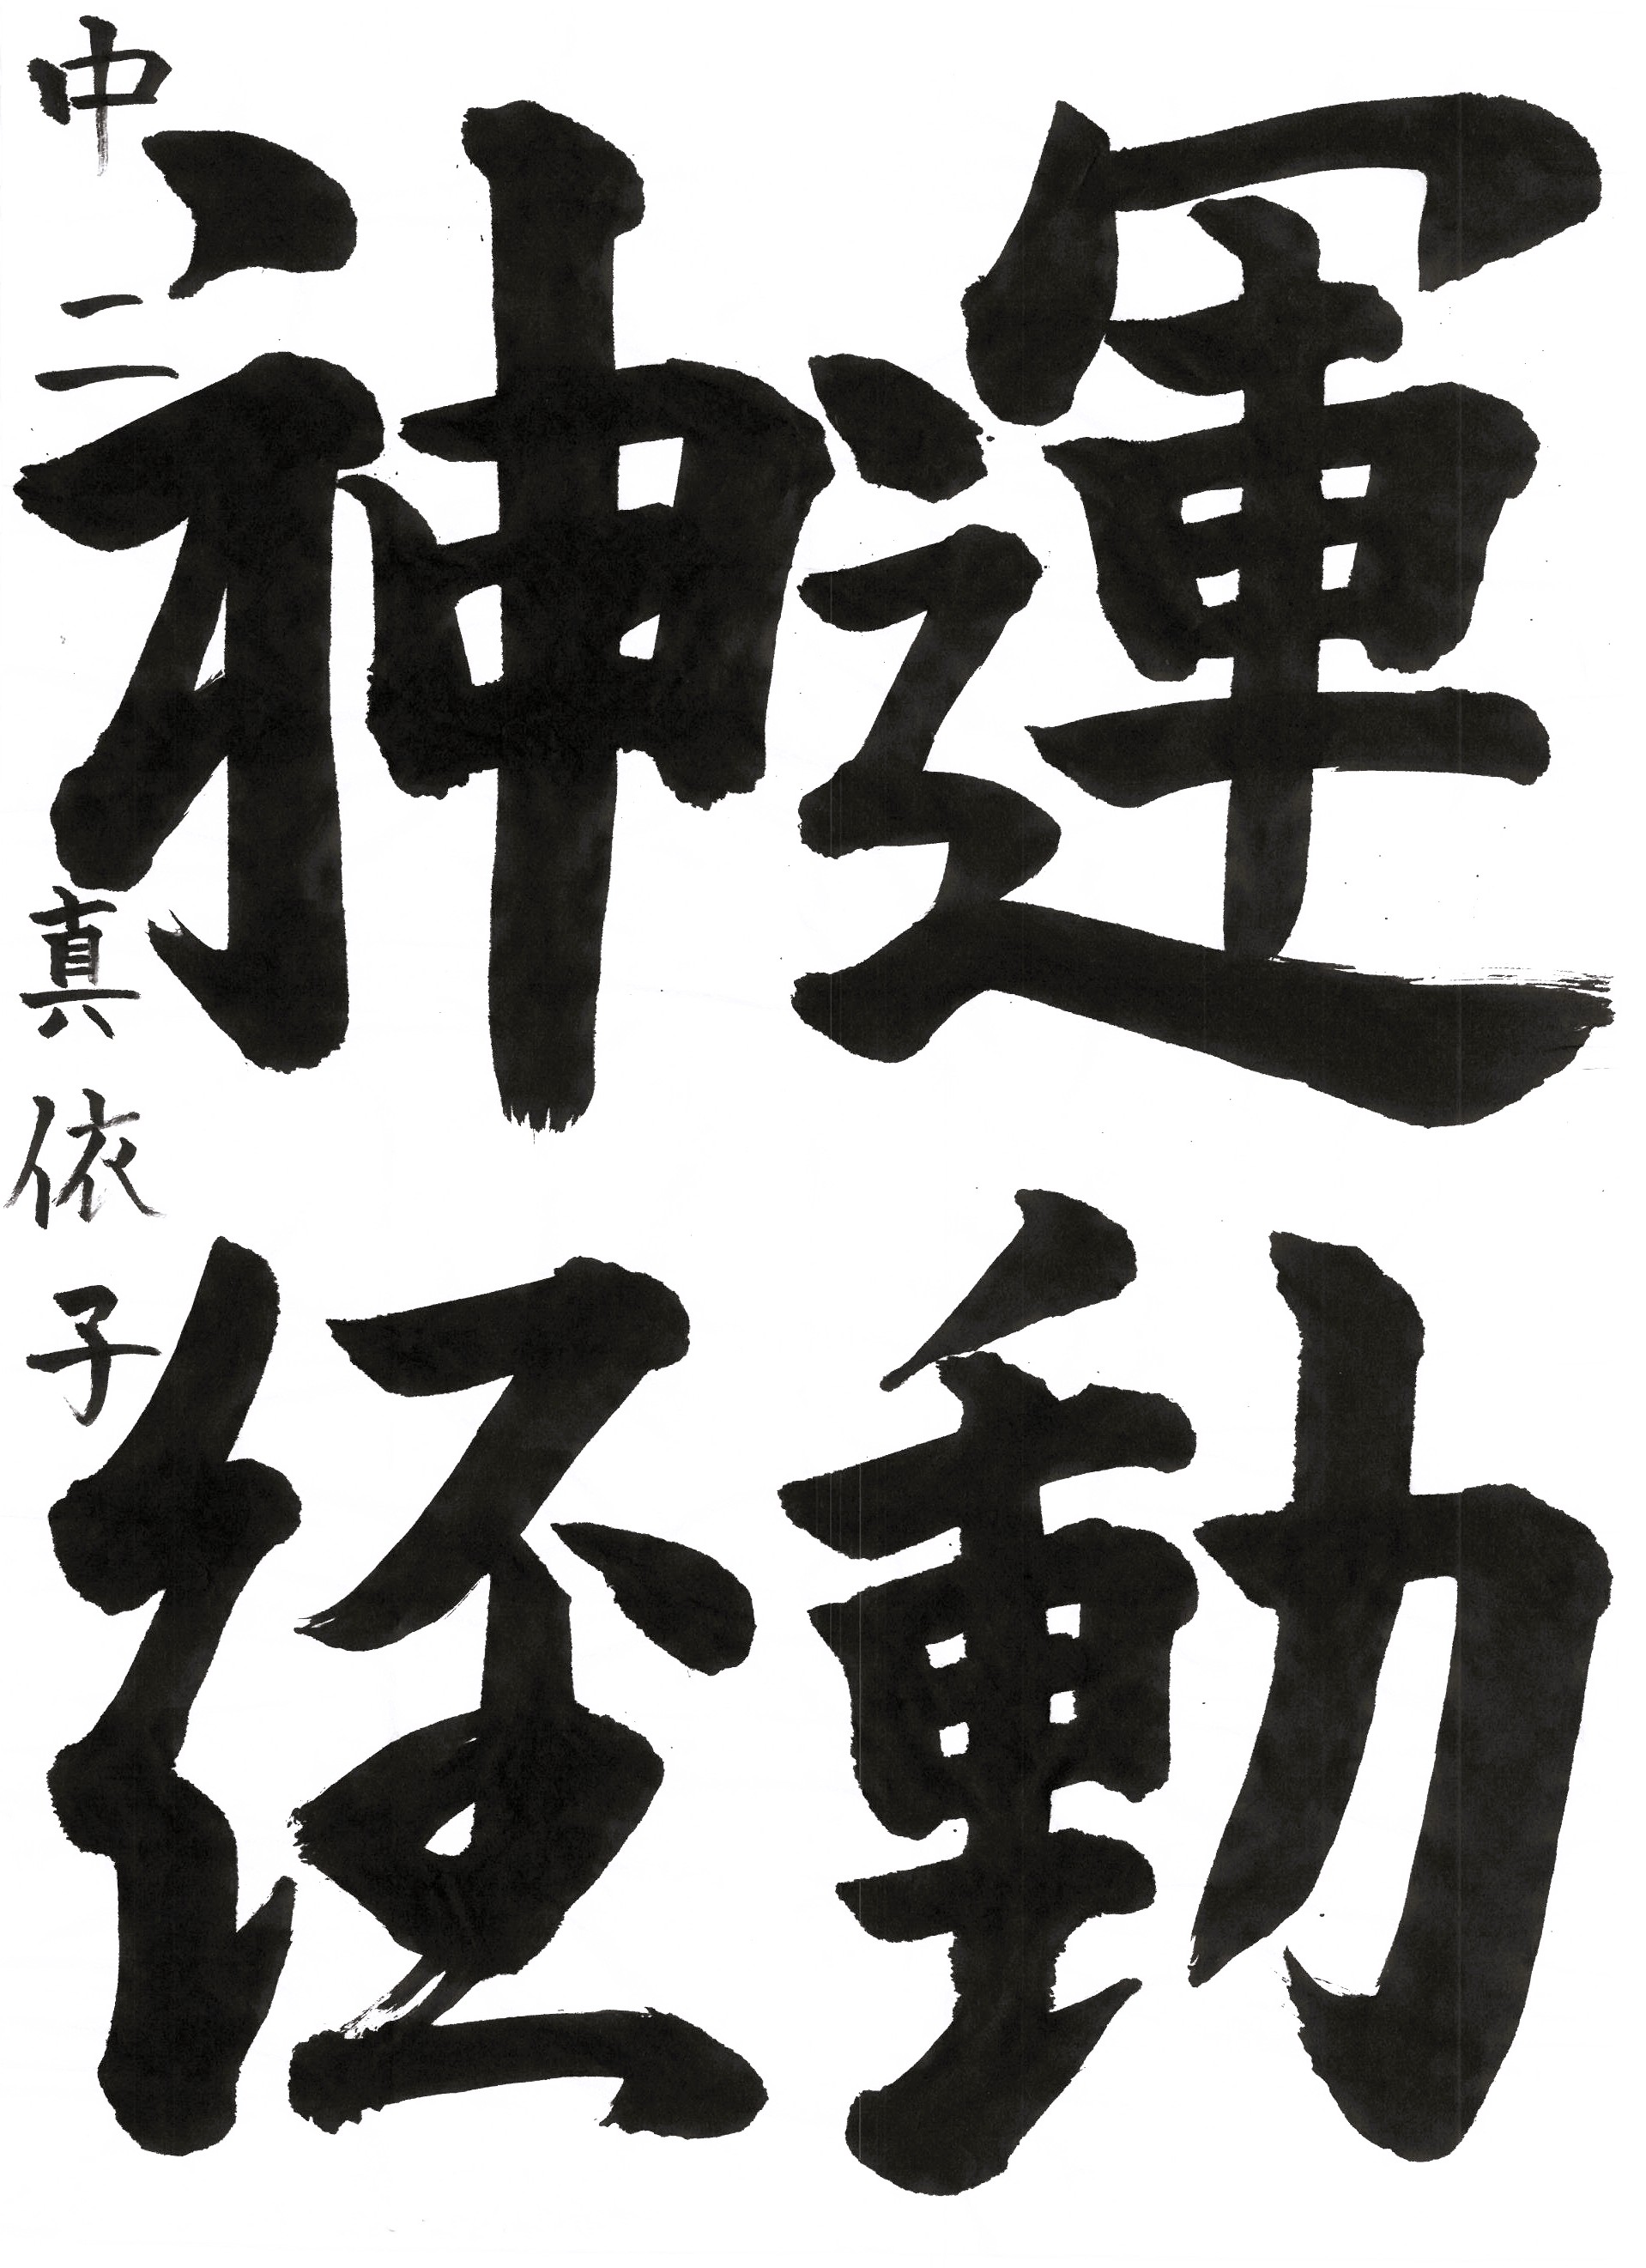 運動
神経
中二 真依子